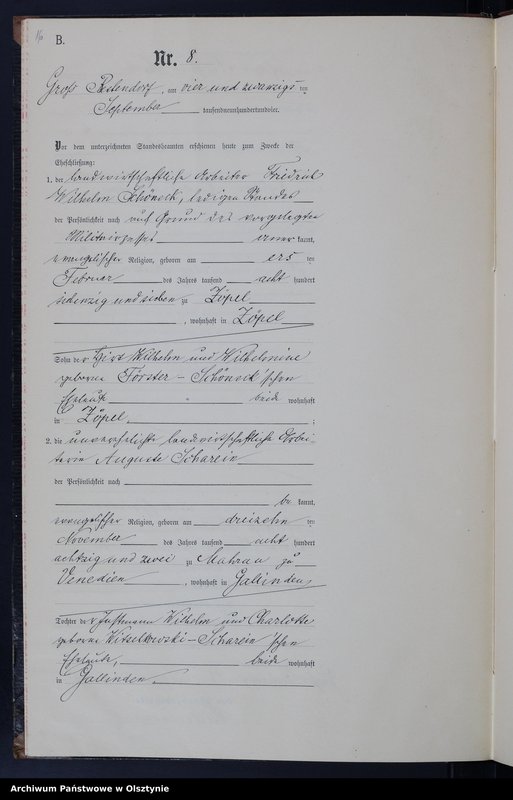 16
B.
Nr. 8.
Groß am vier und zwanzigs ten
September tausendneunhundertundvier.
Vor dem unterzeichneten Standesbeamten erschienen heute zum Zwecke der
Eheschließung:
1. der landwirtschaftliche Arbeiter Friedrich
Wilhelm Schöneck, ledigen Standes
der Persönlichkeit nach auf Grund des vorgelegten
Militairpasses aner kannt,
evangelischer Religion, geboren am ers ten
Februar des Jahres tausend acht hundert
siebenzig und sieben zu Zöpel
, wohnhaft in Zöpel
Sohn der Wilhelm und Wilhelmine
geborene Förster – Schöneck'schen
Eheleute beide wohnhaft
in Zöpel ;
2. die unverehelichte landwirtschaftliche Arbei-
terin Auguste Scharein
der Persönlichkeit nach
be kannt,
evangelischer Religion, geboren am dreizehn ten
November des Jahres tausend acht hundert
achtzig und zwei zu Mahrau zu
Venedien , wohnhaft in Gallinden,
Tochter der Instmann Wilhelm und Charlotte
geborene Witselkowski – Scharein'schen
Eheleute, beide wohnhaft
in Gallinden.
Archiwum Państwowe w Olsztynie